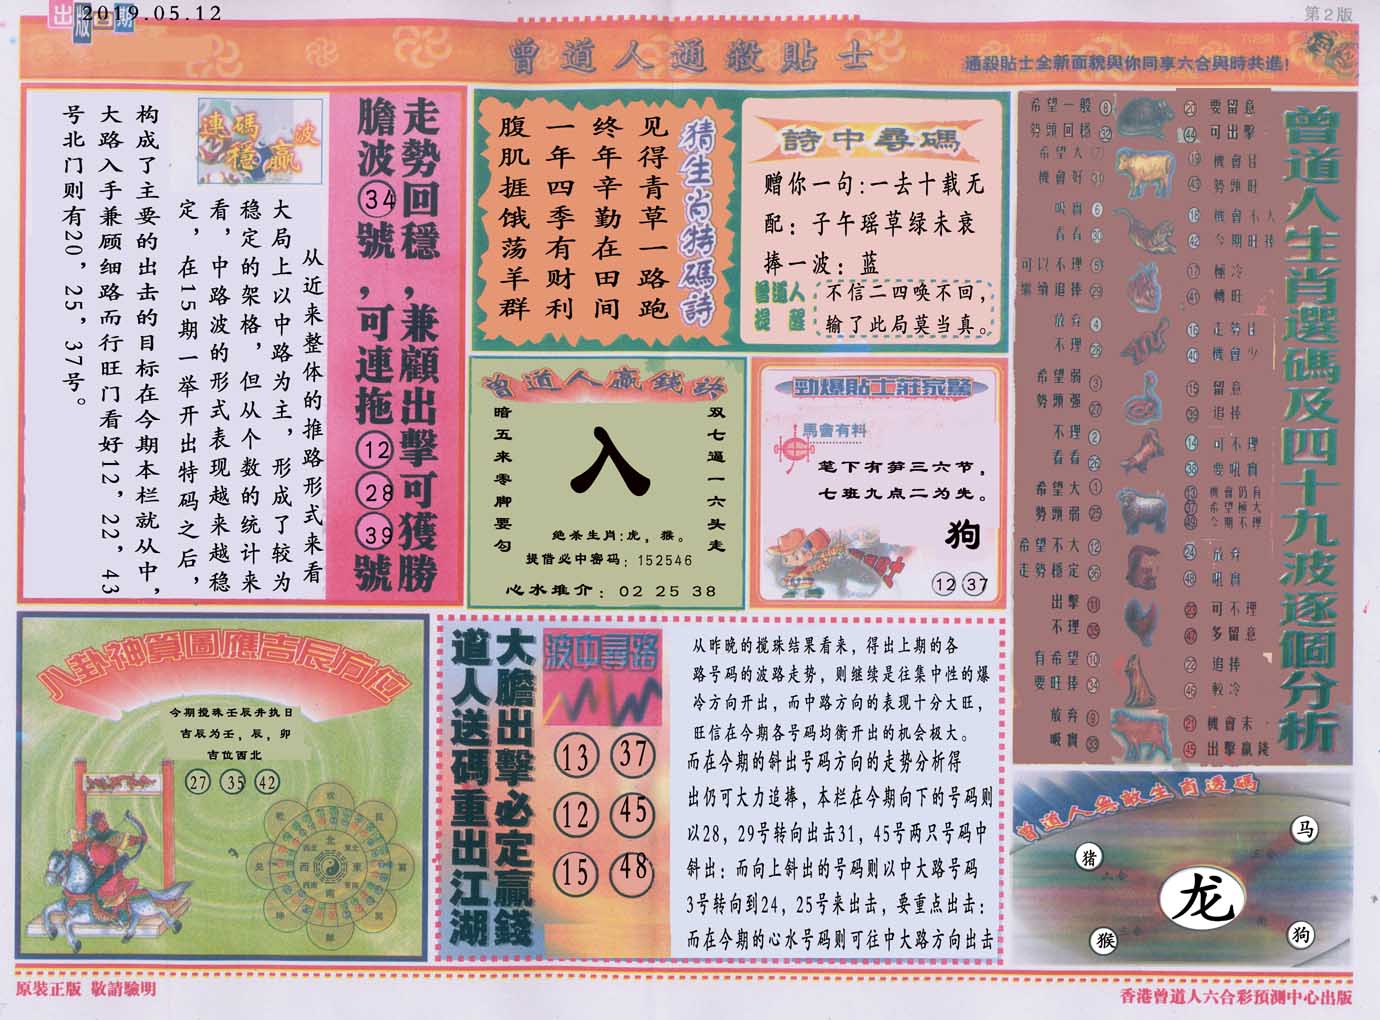 出版日期
2019.05.12
第2版
曾道人通殺貼士
通殺貼士全新面貌與你同享六合與時共進!
走勢回穩,兼顧出擊可獲勝
膽波34號,可連拖12 28 39號
連碼穩贏波
从近来整体的推路形式来看
大局上以中路为主,形成了较为
稳定的架格,但从个数的统计来
看,中路波的形式表现越来越稳
定,在15期一举开出特码之后,
构成了主要的出击的目标在今期本栏就从中,
大路入手兼顾细路而行旺门看好12,22,43
号北门则有20,25,37号。
猜生肖特碼詩
见得青草一路跑
终年辛勤在田间
一年四季有财利
腹肌捱饿荡羊群
詩中尋碼
赠你一句:一去十载无
配:子午瑶草绿未衰
捧一波:蓝
曾道人提醒
不信二四唤不回,
输了此局莫当真。
曾道人贏錢訣
双七逼一六头走
暗五来零脚要勾
入
绝杀生肖:虎,猴。
提借必中密码:152546
心水推介:02 25 38
勁爆貼士莊家驚
馬會有料
笔下有笋三六节,
七班九点二为先。
狗
12 37
曾道人生肖選碼及四十九波逐個分析
希望一般 8 20 要留意
勢頭回穩 32 44 可出擊
希望大 7 19 機會佳
機會好 31 43 勢頭旺
吸實 6 18 機會不大
看看 30 42 今期旺捧
可以不理 5 17 極冷
繼續追捧 29 41 轉旺
放弃 4 16 走勢佳
不理 28 40 機會少
希望弱 3 15 留意
勢頭强 27 39 追捧
不理 2 14 可不理
看看 26 38 要吼實
希望大 1 13 機會仍有
37 希望極大
勢頭弱 25 49 今期不理
希望不大 12 24 放弃
走勢穩定 36 48 吼實
出擊 11 23 可不理
不理 35 47 多留意
有希望 10 22 追捧
要旺捧 34 46 較冷
放弃 9 21 機會末
吸實 33 45 出擊贏錢
八卦神算圖應吉辰方位
今期搅珠壬辰井执日
吉辰为壬,辰,卯
吉位西北
27 35 42
北
西 東
南
大膽出擊必定贏錢
道人送碼重出江湖
波中尋路
13 37
12 45
15 48
从昨晚的搅珠结果看来,得出上期的各
路号码的波路走势,则继续是往集中性的爆
冷方向开出,而中路方向的表现十分大旺,
旺信在今期各号码均衡开出的机会极大。
而在今期的斜出号码方向的走势分析得
出仍可大力追捧,本栏在今期向下的号码则
以28,29号转向出击31,45号两只号码中
斜出:而向上斜出的号码则以中大路号码
3号转向到24,25号来出击,要重点出击:
而在今期的心水号码则可往中大路方向出击
曾道人無敵生肖透碼
猪 马
龙
猴 狗
原裝正版 敬請驗明
香港曾道人六合彩預測中心出版